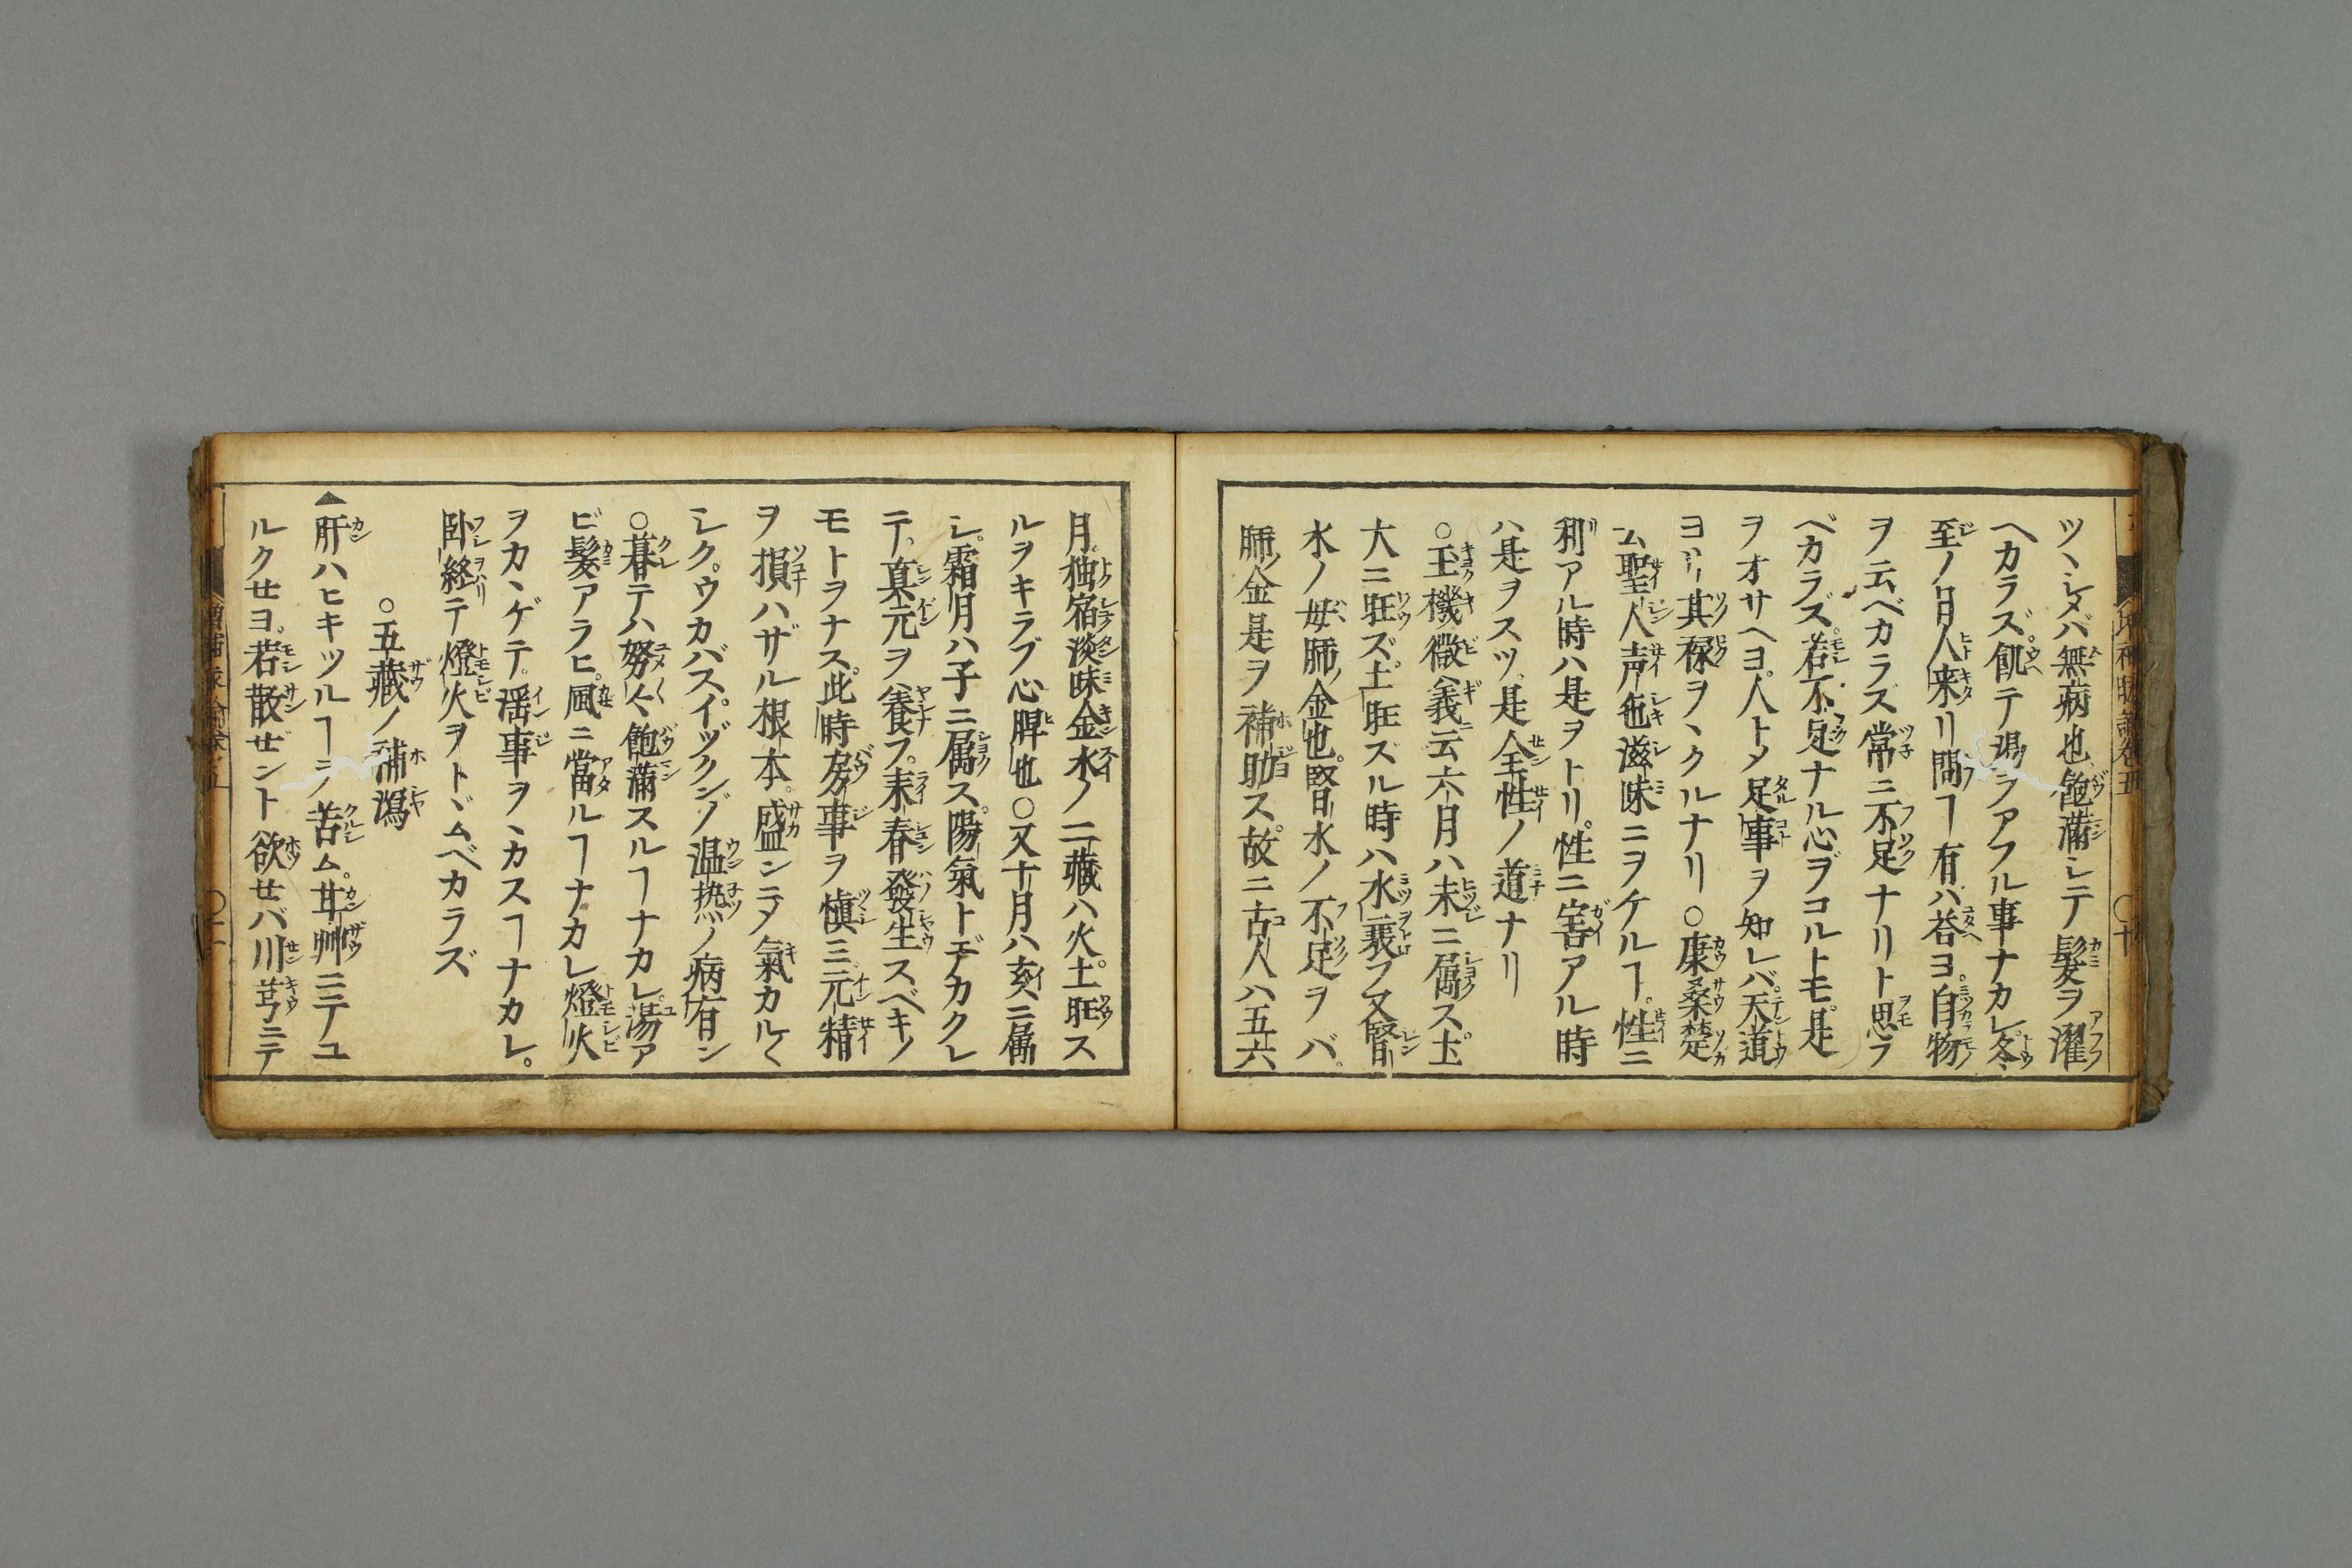 ツヽシメバ無病也飽滿シテ髮ヲ濯
ヘカラズ飢テ湯ヲアフル事ナカレ冬
至ノ日人来リ問ヿ有ハ荅ヨ自物
ヲ云ベカラズ常ニ不足ナリト思フ
ベカラズ若不足ナル心ヲコルトモ是
ヲオサヘヨ人トメ足事ヲ知レバ天道
ヨリ其禄ヲヽクルナリ○康桑楚
ム聖人声色滋味ニヲケルヿ性ニ
利アル時ハ是ヲトリ性ニ害アル時
ハ是ヲスツ是全性ノ道ナリ
○玉機微義云六月ハ未ニ属ス土
大ニ旺ズ土旺ズル時ハ水衰フ又腎
水ノ母肺金也腎水ノ不足ヲバ
肺金是ヲ補助ス故ニ古人ハ五六
月独宿淡味金水ノ二藏ハ火土旺ス
ルヲキラブ心脾也○又十月ハ亥ニ属
シ霜月ハ子ニ属ス陽氣トヂカクレ
テ真元ヲ養フ来春發生スベキノ
モトヲナス此時房事ヲ慎ミ元精
ヲ損ハザル根本盛ンニメ氣カルく
シクウカバスイヅクンゾ温热ノ病有ン
○暮テハ努〻飽滿スルヿナカレ湯ア
ビ髮アラヒ風ニ當ルヿナカレ燈火
ヲカヽゲテ婬事ヲヽカスヿナカレ
臥終テ燈火ヲトヾムベカラズ
○五藏ノ補瀉
▲肝ハヒキツルヿヲ苦ム甘艸ニテユ
ルクせヨ若散ぜント欲せバ川芎ニテ